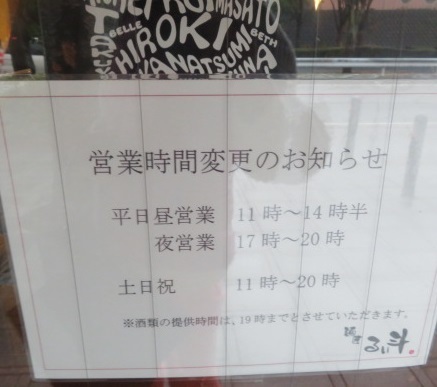 MASATO
BELLE
HIROKI
BETH
KANATSUMI
営業時間変更のお知らせ
平日昼営業 11時～14時半
夜営業 17時～20時
土日祝 11時～20時
※酒類の提供時間は、19時までとさせていただきます。
麺屋 るい斗